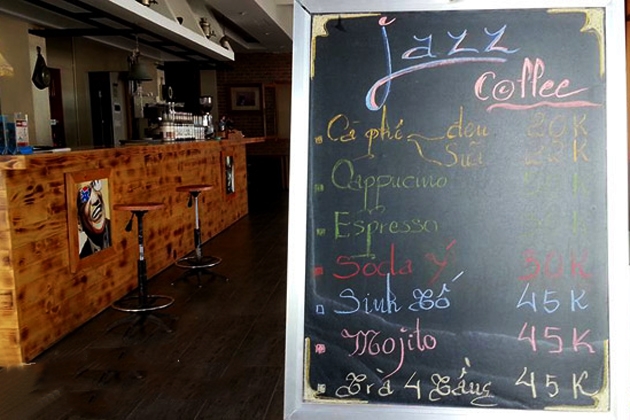 jazz
Coffee
Cà phê đen 20K
Sữa 22K
Cappucino
Espresso
Soda Ý 30K
Sinh Tố 45K
Mojito 45K
Trà 4 Tầng 45K